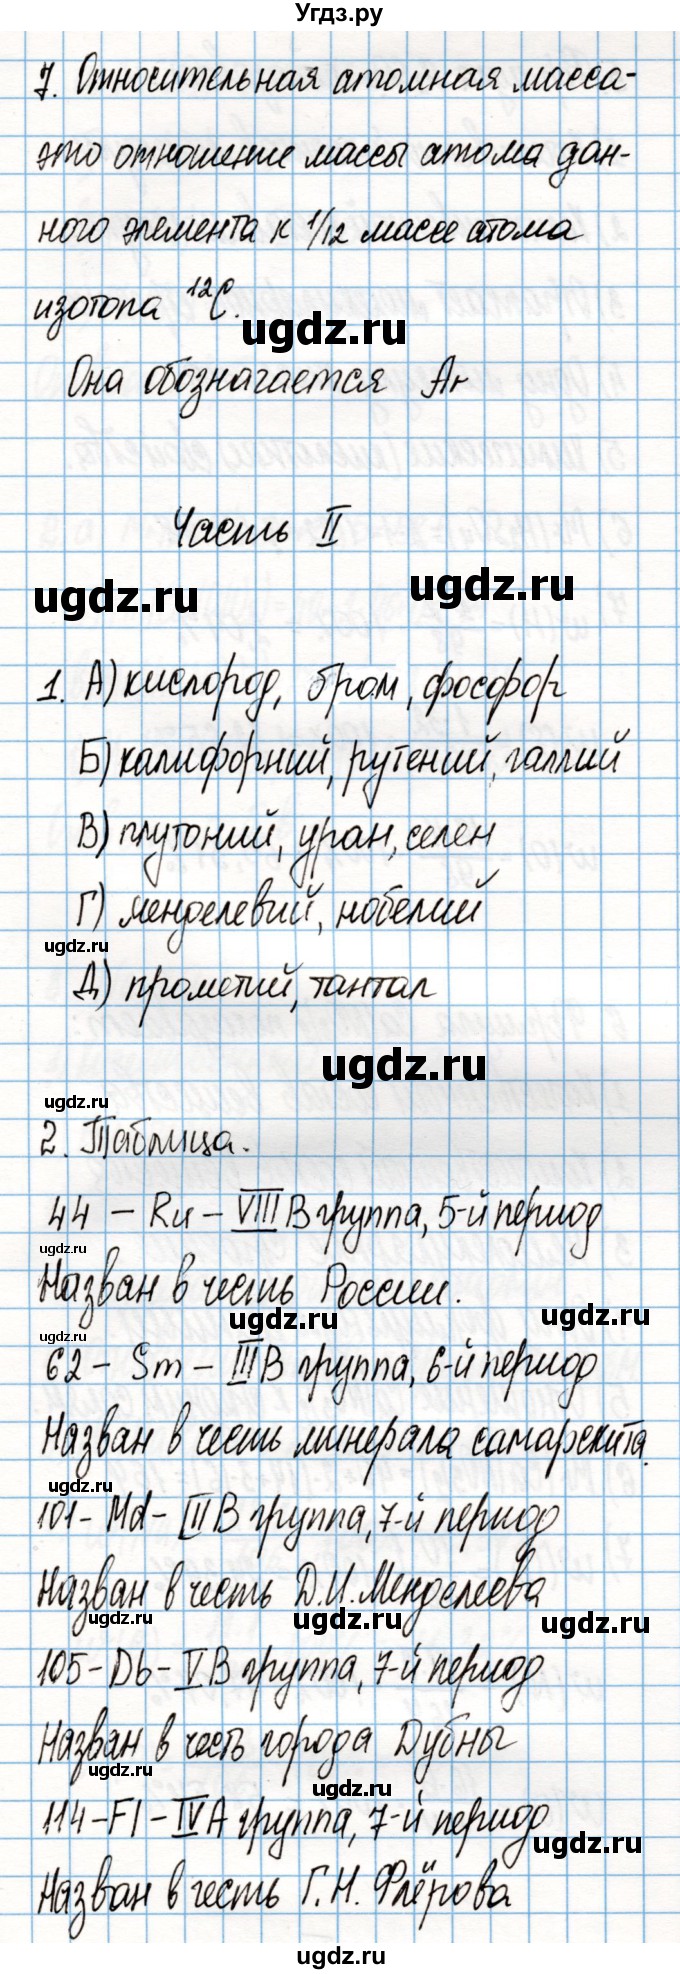 Угдз.ру
7. Относительная атомная масса-
это отношение массы атома дан-
ного элемента к 1/12 массе атома
изотопа ¹²C.
ugdz.ru
Она обозначается Ar
Часть II
ugdz.ru
ugdz.ru
1. А) кислород, бром, фосфор
Б) калифорний, рутений, галлий
В) плутоний, уран, селен
Г) менделевий, нобелий
ugdz.ru
Д) прометий, тантал
ugdz.ru
ugdz.ru
2. Таблица.
44 - Ru - VIII B группа, 5-й период
ugdz.ru
Назван в честь России.
ugdz.ru
ugdz.ru
ugdz.ru
62 - Sm - III B группа, 6-й период
Назван в честь минерала самарскита.
ugdz.ru
101 - Md - III B группа, 7-й период
Назван в честь Д.И. Менделеева
ugdz.ru
ugdz.ru
ugdz.ru
105 - Db - V B группа, 7-й период
Назван в честь города Дубны
ugdz.ru
114 - Fl - IV A группа, 7-й период
ugdz.ru
Назван в честь Г.Н. Флёрова
ugdz.ru